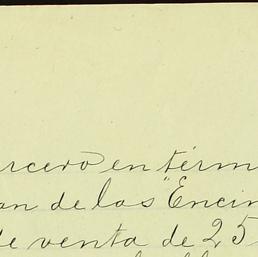 rcero en térm
on de las "Encin
de venta de 25